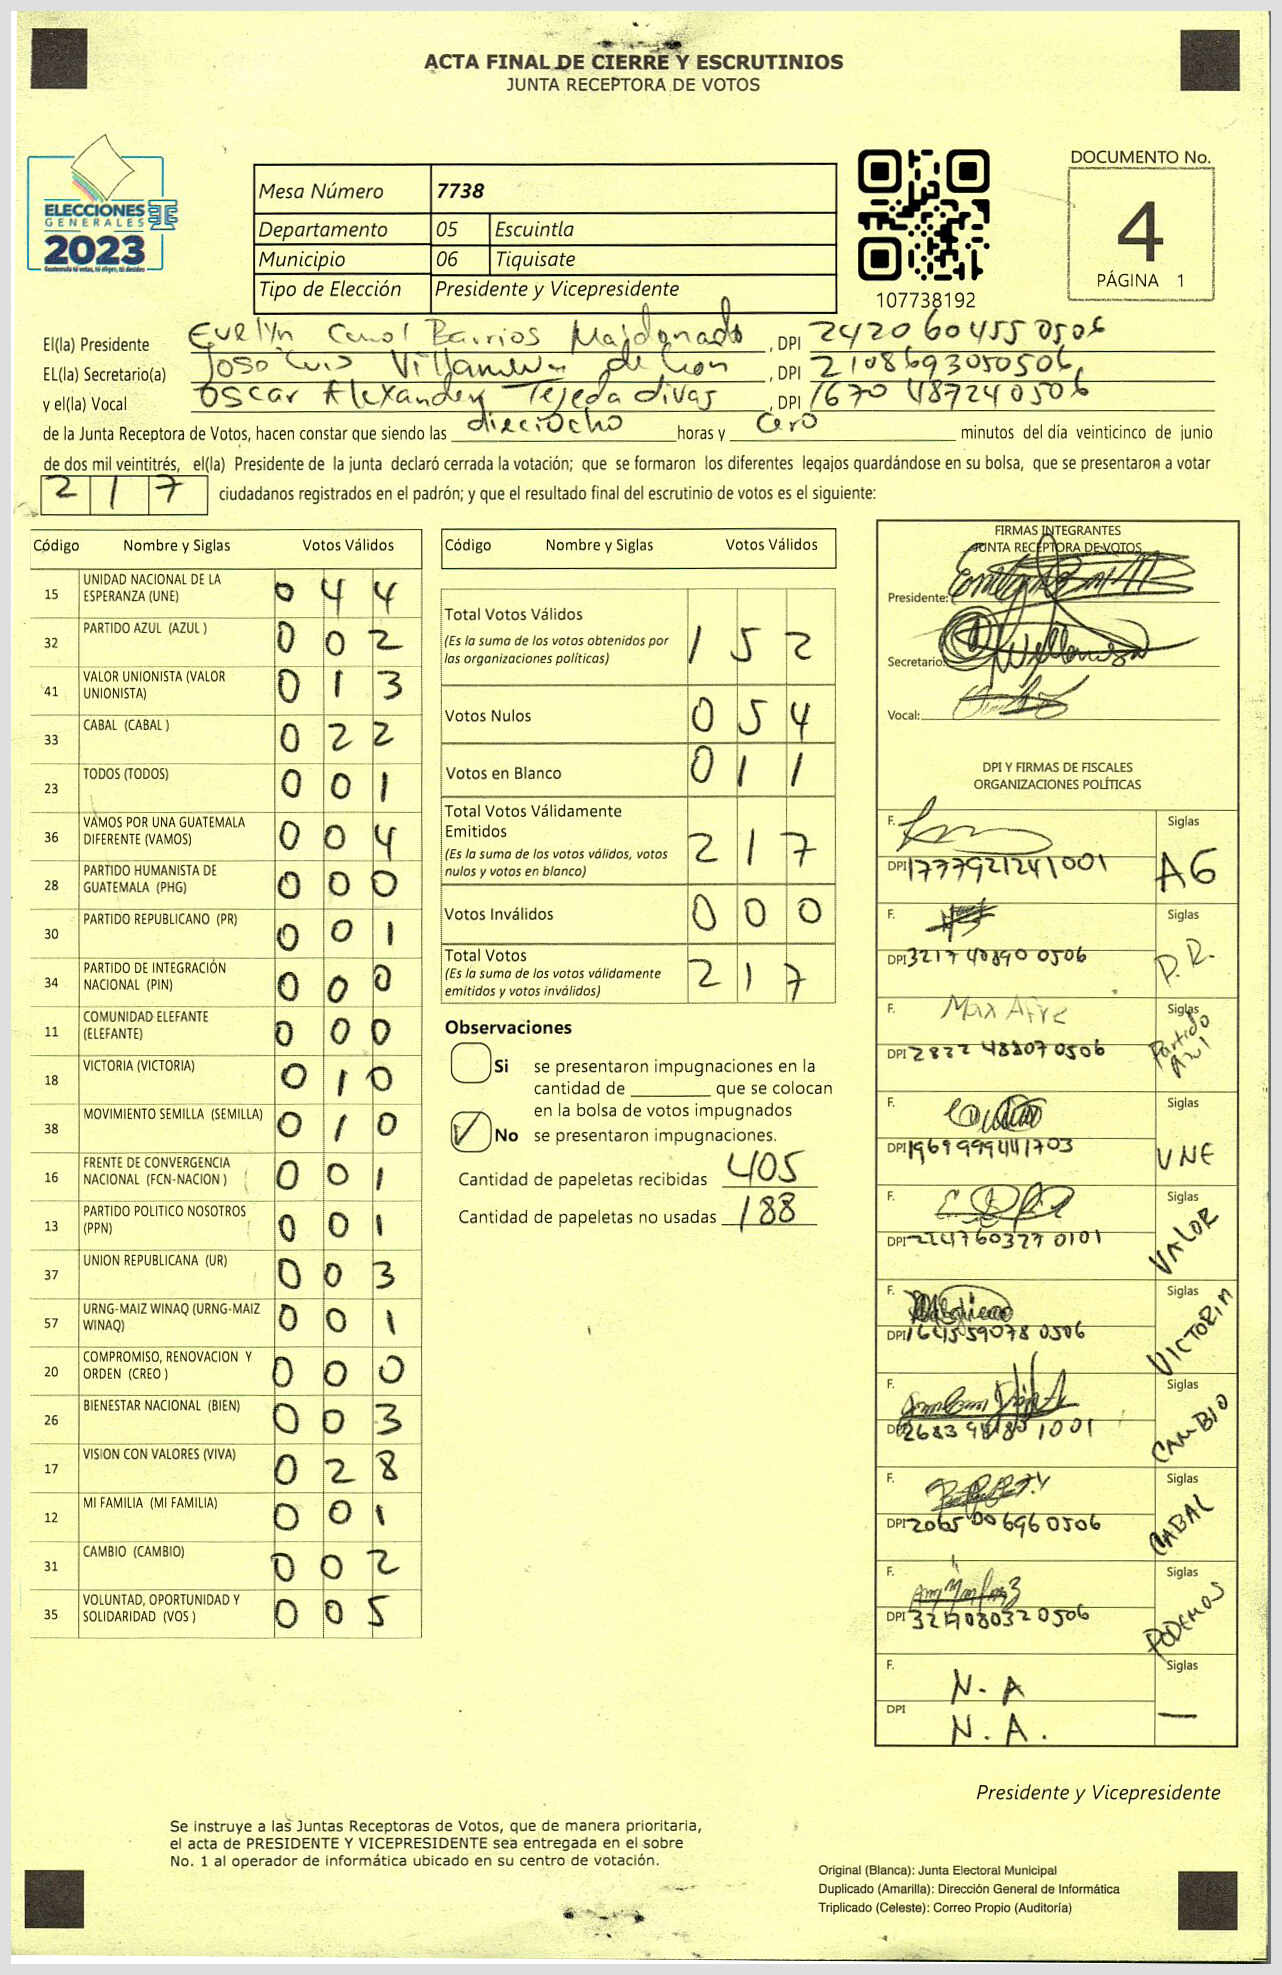 ACTA FINAL DE CIERRE Y ESCRUTINIOS
JUNTA RECEPTORA DE VOTOS
ELECCIONES
GENERALES
2023
Guatemala tú votas, tú eliges, tú decides
Mesa Número 7738
Departamento 05 Escuintla
Municipio 06 Tiquisate
Tipo de Elección Presidente y Vicepresidente
107738192
DOCUMENTO No.
4
PÁGINA 1
El(la) Presidente Evelyn Carol Barrios Maldonado, DPI 2420604550506
EL(la) Secretario(a) Jose Luis de Leon, DPI 2108693050506
y el(la) Vocal Oscar Alexander Tejeda divas, DPI 1670 487240506
de la Junta Receptora de Votos, hacen constar que siendo las dieciocho horas y cero minutos del día veinticinco de junio
de dos mil veintitrés, el(la) Presidente de la junta declaró cerrada la votación; que se formaron los diferentes legajos quardándose en su bolsa, que se presentaron a votar
217 ciudadanos registrados en el padrón; y que el resultado final del escrutinio de votos es el siguiente:
Código Nombre y Siglas Votos Válidos
15 UNIDAD NACIONAL DE LA ESPERANZA (UNE) 044
32 PARTIDO AZUL (AZUL ) 002
41 VALOR UNIONISTA (VALOR UNIONISTA) 013
33 CABAL (CABAL ) 022
23 TODOS (TODOS) 001
36 VAMOS POR UNA GUATEMALA DIFERENTE (VAMOS) 004
28 PARTIDO HUMANISTA DE GUATEMALA (PHG) 000
30 PARTIDO REPUBLICANO (PR) 001
34 PARTIDO DE INTEGRACIÓN NACIONAL (PIN) 000
11 COMUNIDAD ELEFANTE (ELEFANTE) 000
18 VICTORIA (VICTORIA) 010
38 MOVIMIENTO SEMILLA (SEMILLA) 010
16 FRENTE DE CONVERGENCIA NACIONAL (FCN-NACION ) 001
13 PARTIDO POLITICO NOSOTROS (PPN) 001
37 UNION REPUBLICANA (UR) 003
57 URNG-MAIZ WINAQ (URNG-MAIZ WINAQ) 001
20 COMPROMISO, RENOVACION Y ORDEN (CREO ) 000
26 BIENESTAR NACIONAL (BIEN) 003
17 VISION CON VALORES (VIVA) 028
12 MI FAMILIA (MI FAMILIA) 001
31 CAMBIO (CAMBIO) 002
35 VOLUNTAD, OPORTUNIDAD Y SOLIDARIDAD (VOS ) 005
Código Nombre y Siglas Votos Válidos
Total Votos Válidos 152
(Es la suma de los votos obtenidos por
las organizaciones políticas)
Votos Nulos 054
Votos en Blanco 011
Total Votos Válidamente
Emitidos 217
(Es la suma de los votos válidos, votos
nulos y votos en blanco)
Votos Inválidos 000
Total Votos 217
(Es la suma de los votos válidamente
emitidos y votos inválidos)
Observaciones
Si se presentaron impugnaciones en la
cantidad de ________ que se colocan
en la bolsa de votos impugnados
No se presentaron impugnaciones.
Cantidad de papeletas recibidas 405
Cantidad de papeletas no usadas 188
FIRMAS INTEGRANTES
JUNTA RECEPTORA DE VOTOS
Presidente:
Secretario:
Vocal:
DPI Y FIRMAS DE FISCALES
ORGANIZACIONES POLÍTICAS
F. Siglas
DPI 1777921241001 A6
F. Siglas
DPI 0506 P.R.
F. Max Siglas
DPI 2822 488070506 Partido Azul
F. Siglas
DPI UNE
F. Siglas
DPI 0101 VALOR
F. Siglas
DPI 1645590780506 VICTORIA
F. Siglas
DPI 1001 CAMBIO
F. Siglas
DPI 2065006960506 CABAL
F. Siglas
DPI PODEMOS
F. N.A Siglas
DPI N.A. —
Presidente y Vicepresidente
Se instruye a las Juntas Receptoras de Votos, que de manera prioritaria,
el acta de PRESIDENTE Y VICEPRESIDENTE sea entregada en el sobre
No. 1 al operador de informática ubicado en su centro de votación.
Original (Blanca): Junta Electoral Municipal
Duplicado (Amarilla): Dirección General de Informática
Triplicado (Celeste): Correo Propio (Auditoría)